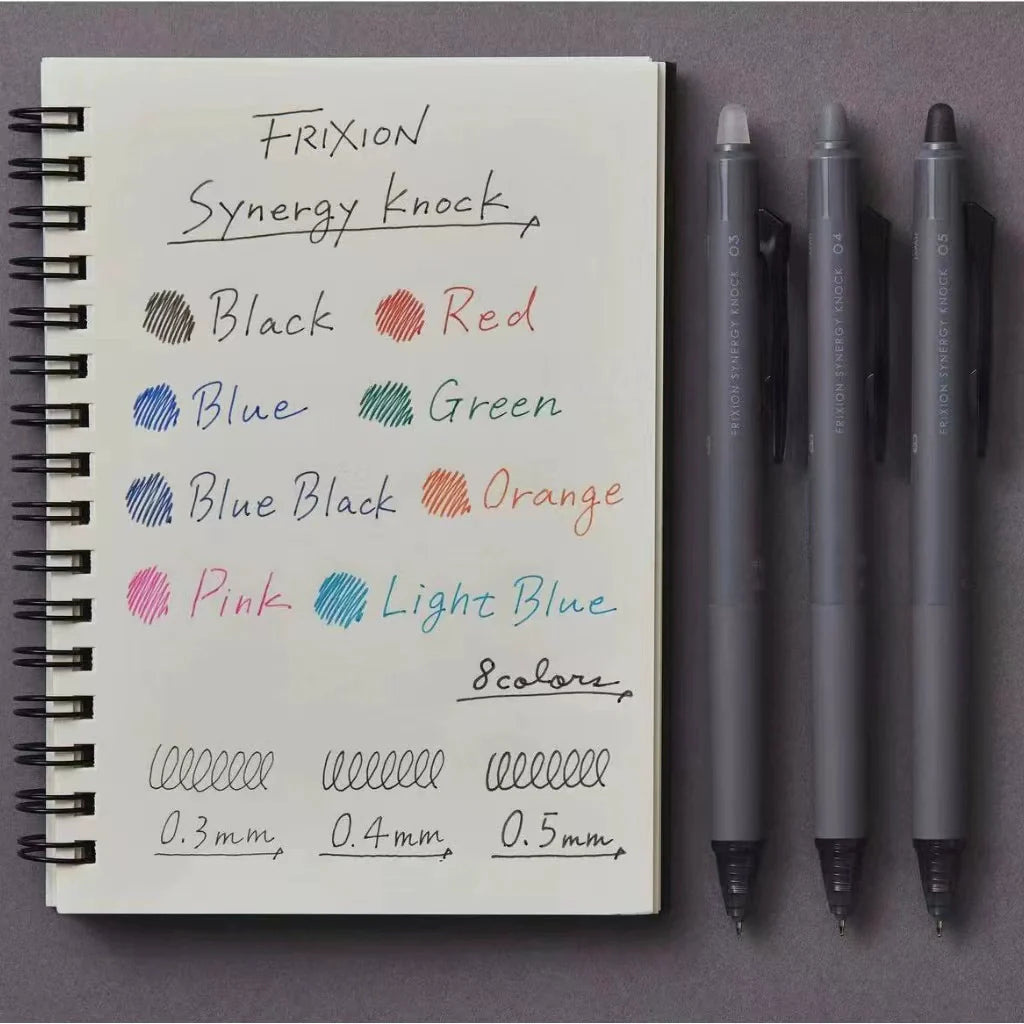 FRIXION
Synergy Knock
Black Red
Blue Green
Blue Black Orange
Pink Light Blue
8colors
0.3mm 0.4mm 0.5mm
FRIXION SYNERGY KNOCK 03
FRIXION SYNERGY KNOCK 04
FRIXION SYNERGY KNOCK 05